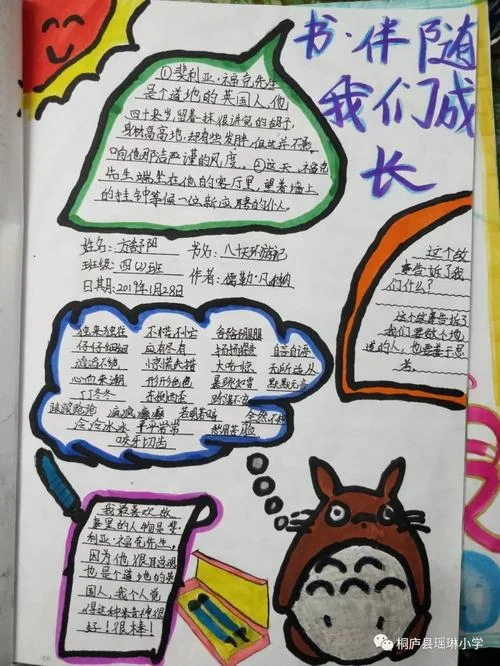 书·伴随
我们成
长
①斐利亚·福克先生
是个道地的英国人,他
四十来岁,留着一抹很讲究的胡子,
身材高高地,却有些发胖,但这并不影
响他那洁严谨的风度。②这天,福克
先生端坐在他的客厅里,望着墙上
的挂钟等候一位新应聘的仆人。
姓名:方舒阳
书名:八十天环游记
班级:四(2)班
作者:儒勒·凡尔纳
日期:2019年1月28日
这个故
事告诉了我
们什么?
这个故事告诉了
我们要做个地
道的人,也要善于思
考。
独来独往 不慌不忙
仔仔细细 应有尽有 自言自语
滔滔不绝 惊慌失措 大吃惊 无所适从
心血来潮 形形色色
丁丁冬冬
疯疯癫癫 全然不
冷冷冰冰 平平常常 愁眉苦脸
咬牙切齿
我最喜欢故
事里的人物是斐
利亚·福克先生,
因为他很
也是个道地的英
国人,我个人觉
得这种
好!很棒!
桐庐县瑶琳小学